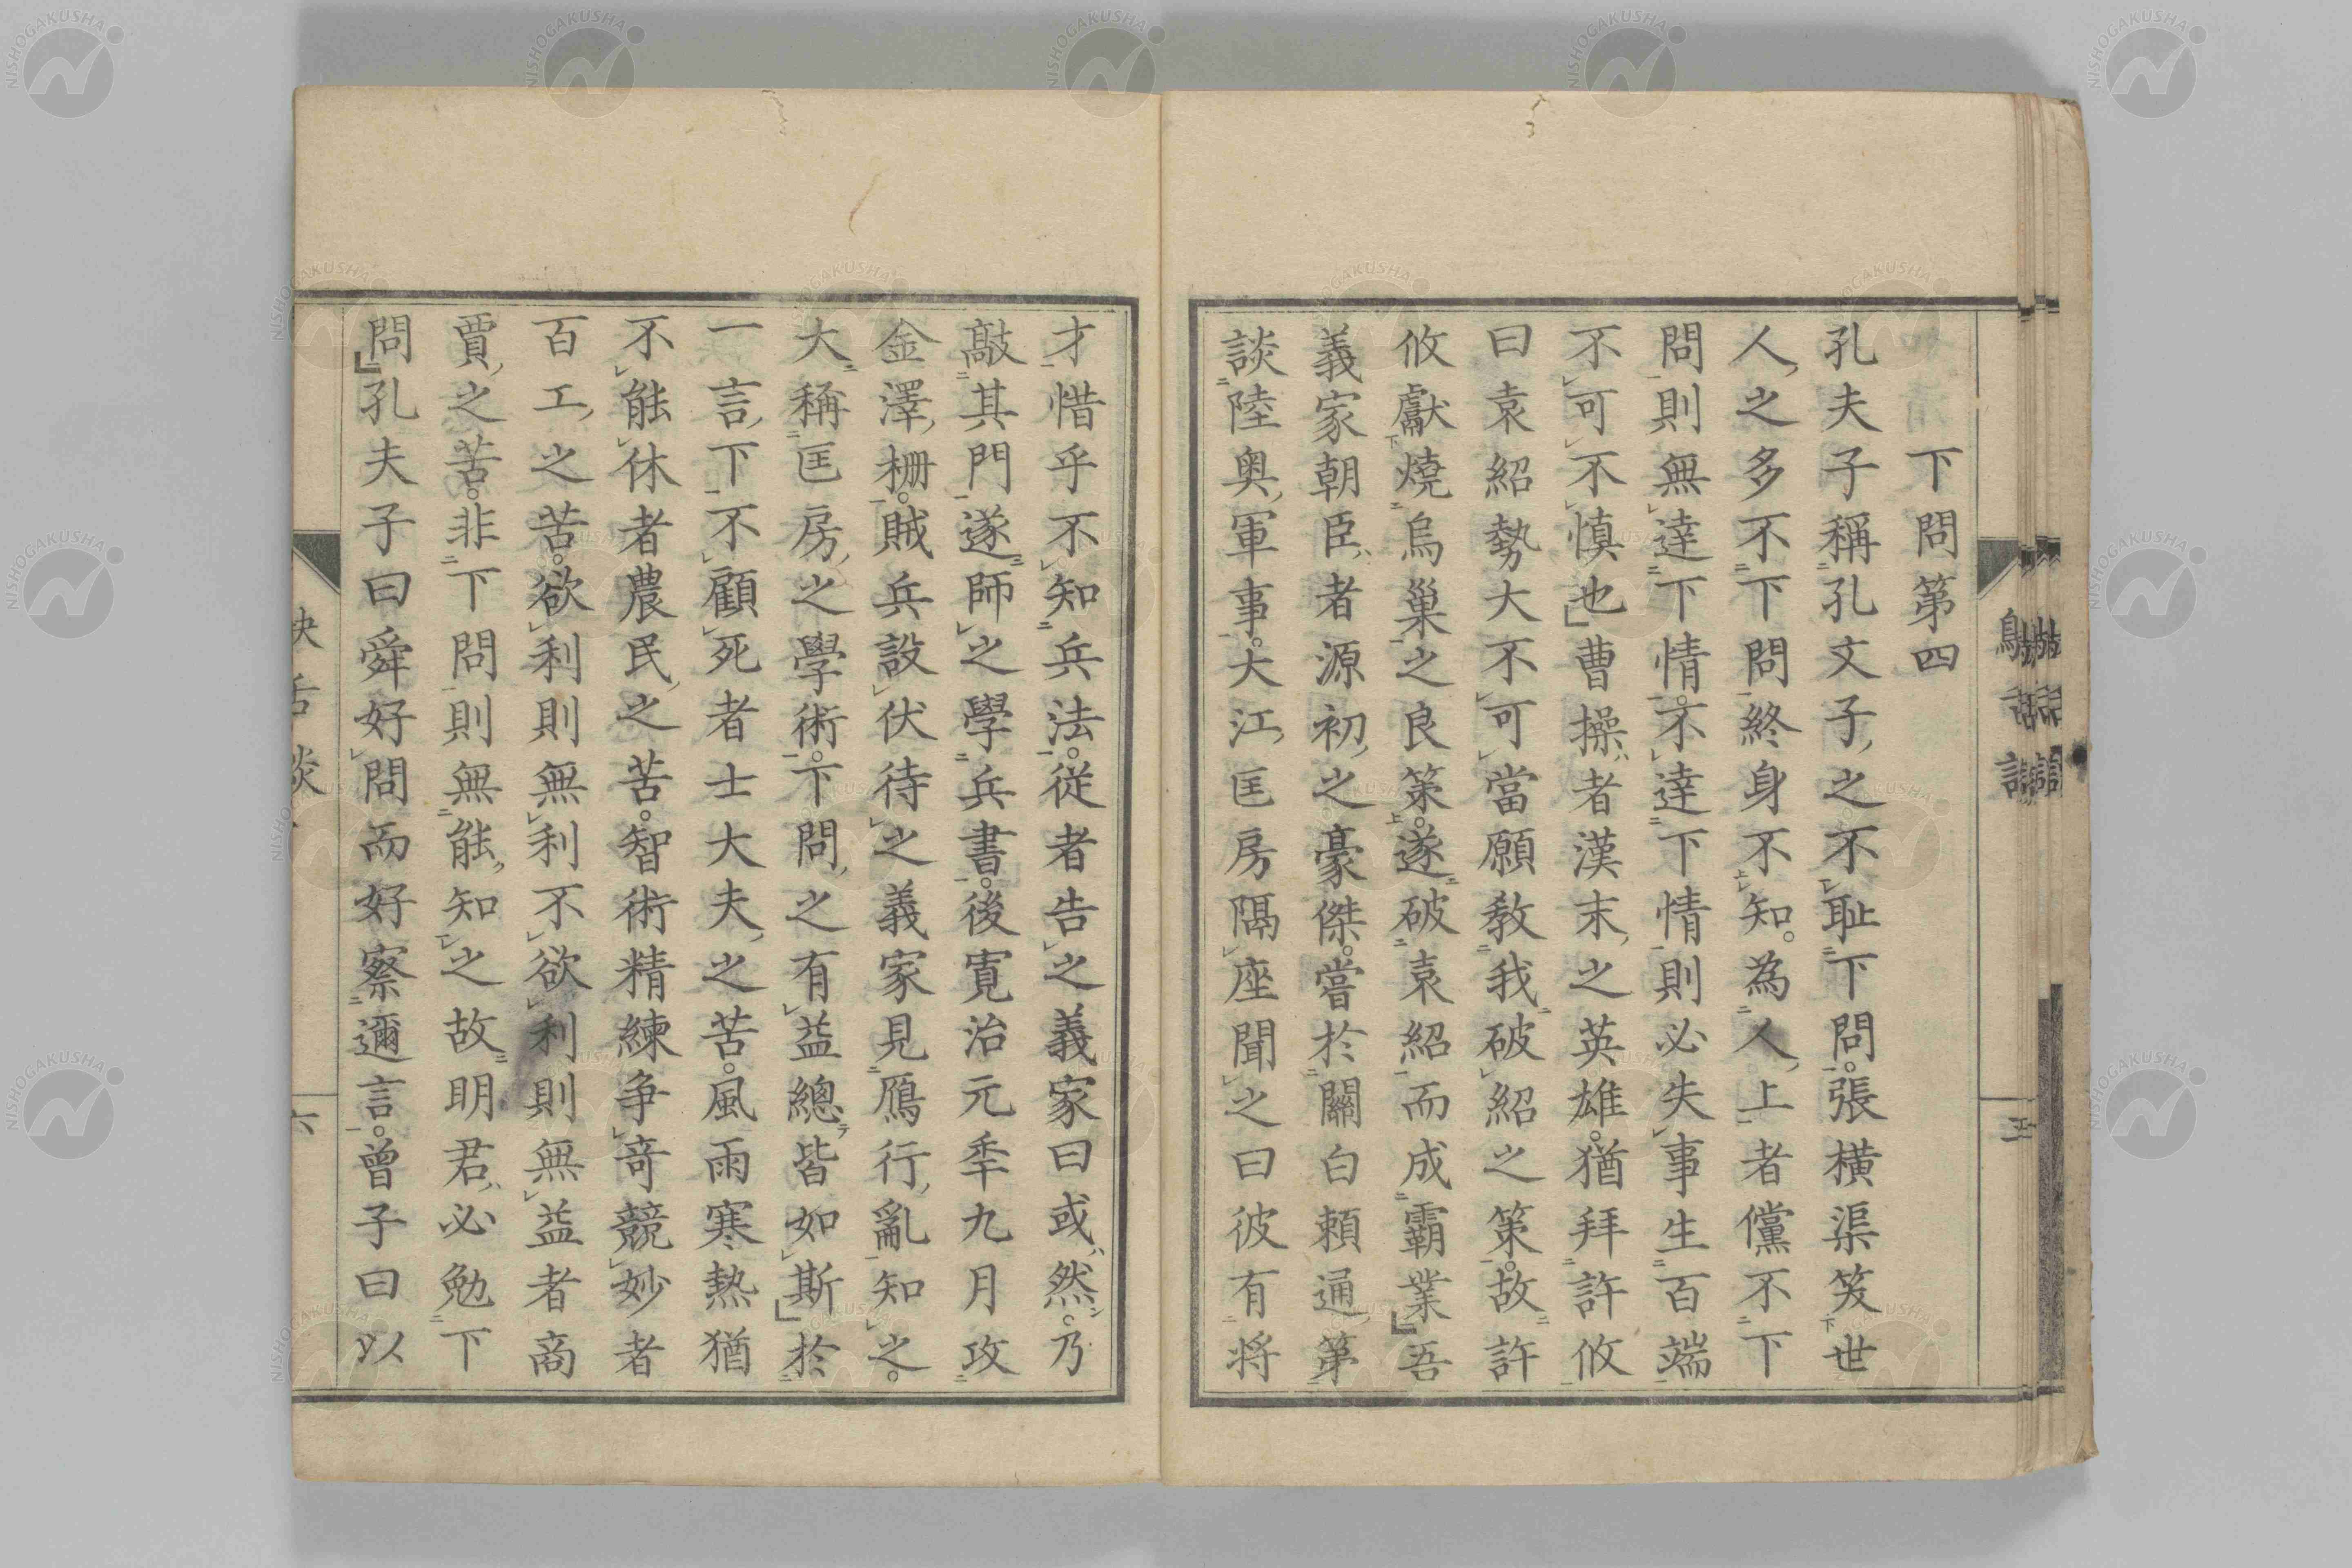 下問第四
孔夫子稱孔文子之不恥下問。張橫渠笑世
人之多不下問終身不知。為人上者儻不下
問則無達下情。不達下情則必失事生百端
不可不慎也」曹操者漢末之英雄。猶拜許攸
曰袁紹勢大不可當願教我破紹之策。故許
攸獻燒烏巢之良策。遂破袁紹而成霸業」吾
義家朝臣者源初之豪傑。嘗於關白頼通第
談陸奥軍事。大江匡房隔座聞之曰彼有将
才惜乎不知兵法。従者告之義家曰或然。乃
敲其門遂師之學兵書。後寛治元年九月攻
金澤柵。賊兵設伏待之義家見鴈行亂知之。
大稱匡房之學術。下問之有益總皆如斯」於
一言下不顧死者士大夫之苦。風雨寒熱猶
不能休者農民之苦。智術精練争竒競妙者
百工之苦。欲利則無利不欲利則無益者商
賈之苦。非下問則無能知之故明君必勉下
問」孔夫子曰舜好問而好察邇言。曽子曰以
六
NISHOGAKUSHA